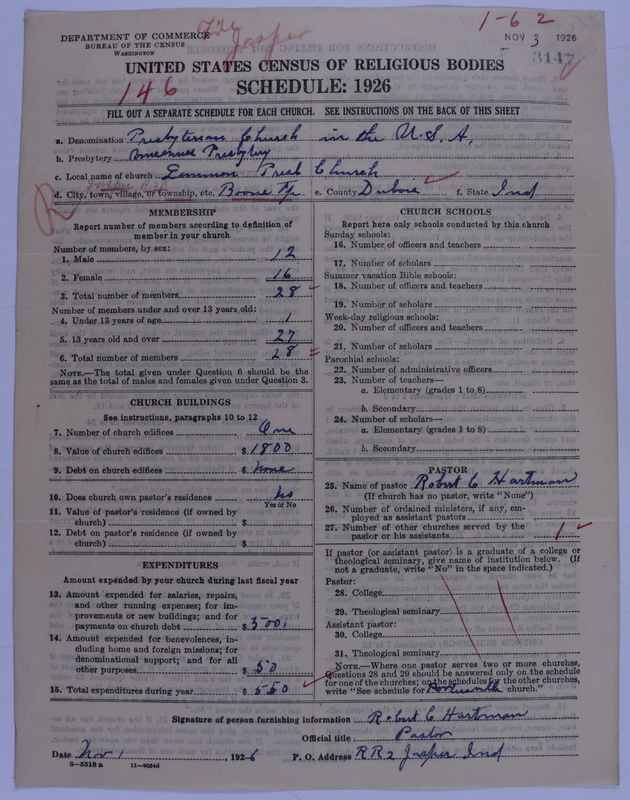 File
Jasper
1-62
DEPARTMENT OF COMMERCE
BUREAU OF THE CENSUS
WASHINGTON
NOV 3 1926
3147
UNITED STATES CENSUS OF RELIGIOUS BODIES
SCHEDULE: 1926
146
FILL OUT A SEPARATE SCHEDULE FOR EACH CHURCH. SEE INSTRUCTIONS ON THE BACK OF THIS SHEET
a. Denomination Presbyterian Church in the U.S.A,
b. Presbytery Presbytery
c. Local name of church Emmon Presb Church
d. City, town, village, or township, etc. Boone Tp. e. County Dubois f. State Ind
R
MEMBERSHIP
Report number of members according to definition of
member in your church
Number of members, by sex:
1. Male 12
2. Female 16
3. Total number of members 28
Number of members under and over 13 years old:
4. Under 13 years of age 1
5. 13 years old and over 27
6. Total number of members 28
NOTE.—The total given under Question 6 should be
same as the total of males and females given under Question 3.
CHURCH BUILDINGS
See instructions, paragraphs 10 to 12
7. Number of church edifices One
8. Value of church edifices $ 1800
9. Debt on church edifices $ none
10. Does church own pastor's residence No
Yes or No
11. Value of pastor's residence (if owned by
church) $
12. Debt on pastor's residence (if owned by
church) $
EXPENDITURES
Amount expended by your church during last fiscal year
13. Amount expended for salaries, repairs,
and other running expenses; for im-
provements or new buildings; and for
payments on church debt $ 500.
14. Amount expended for benevolences, in-
cluding home and foreign missions; for
denominational support; and for all
other purposes $ 50
15. Total expenditures during year $ 550
CHURCH SCHOOLS
Report here only schools conducted by this church
Sunday schools:
16. Number of officers and teachers
17. Number of scholars
Summer vacation Bible schools:
18. Number of officers and teachers
19. Number of scholars
Week-day religious schools:
20. Number of officers and teachers
21. Number of scholars
Parochial schools:
22. Number of administrative officers
23. Number of teachers—
a. Elementary (grades 1 to 8)
b. Secondary
24. Number of scholars—
a. Elementary (grades 1 to 8)
b. Secondary
PASTOR
25. Name of pastor Robert C Hartman
(If church has no pastor, write "None")
26. Number of ordained ministers, if any, em-
ployed as assistant pastors
27. Number of other churches served by the
pastor or his assistants 1
If pastor (or assistant pastor) is a graduate of a college or
theological seminary, give name of institution below. (If
not a graduate, write "No" in the space indicated.)
Pastor:
28. College
29. Theological seminary
Assistant pastor:
30. College
31. Theological seminary
NOTE.—Where one pastor serves two or more churches,
Questions 28 and 29 should be answered only on the schedule
for one of the churches; on the schedules for the other churches,
write "See schedule for church."
Signature of person furnishing information Robert C Hartman
Official title Pastor
Date Nov 1, 1926 P. O. Address RR2 Jasper Ind
8-5518 a 11-9054d